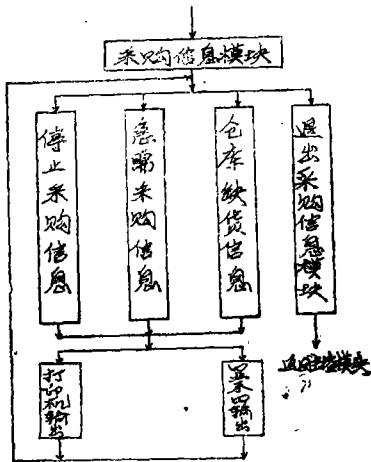 采购信息模块
停止采购信息
急需采购信息
仓库缺货信息
退出采购信息模块
打印机输出
显示输出